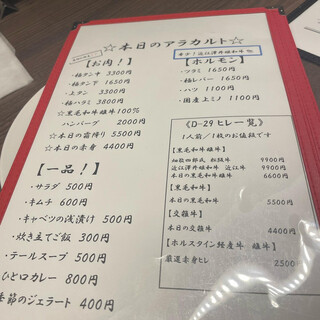 ☆本日のアラカルト☆
【お肉！】
・極タン中 3300円
・極タン下 3800円
・上タン 3300円
・極ハラミ 3800円
☆黒毛和牛雌牛100%
ハンバーグ 2000円
☆本日の霜降り 5500円
☆本日の赤身 4400円
【一品！】
・サラダ 500円
・キムチ 600円
・キャベツの浅漬け 500円
・炊き立てご飯 300円
・テールスープ 500円
ひと口カレー 800円
季節のジェラート 400円
【ホルモン】
・ツラミ 1650円
・極レバー 1650円
・ハツ 1100円
・国産上ミノ 1100円
《D-29ヒレ一覧》
1人前／1枚のお値段です
【黒毛和牛雌牛】
9900円
近江澤井姫和牛 近江牛 9900円
本日の黒毛和牛雌牛 6600円
【黒毛和牛】
本日の黒毛和牛 5500円
【交雑牛】
本日の交雑牛 4400円
【ホルスタイン経産牛 雌牛】
厳選赤身ヒレ 2500